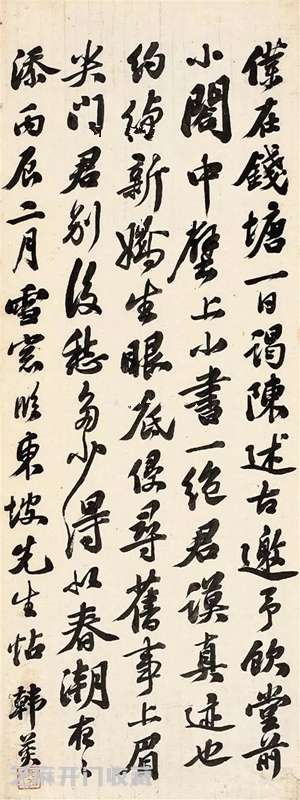 僕在錢塘一日謁陳述古邀予飲堂前
小閣中壁上小書一絕君謨真迹也
約綽新嬌生眼底侵尋舊事上眉
尖問君別後愁多少得似春潮夜々
添丙辰二月雪窓臨東坡先生帖 韓菼
芝麻开门收藏